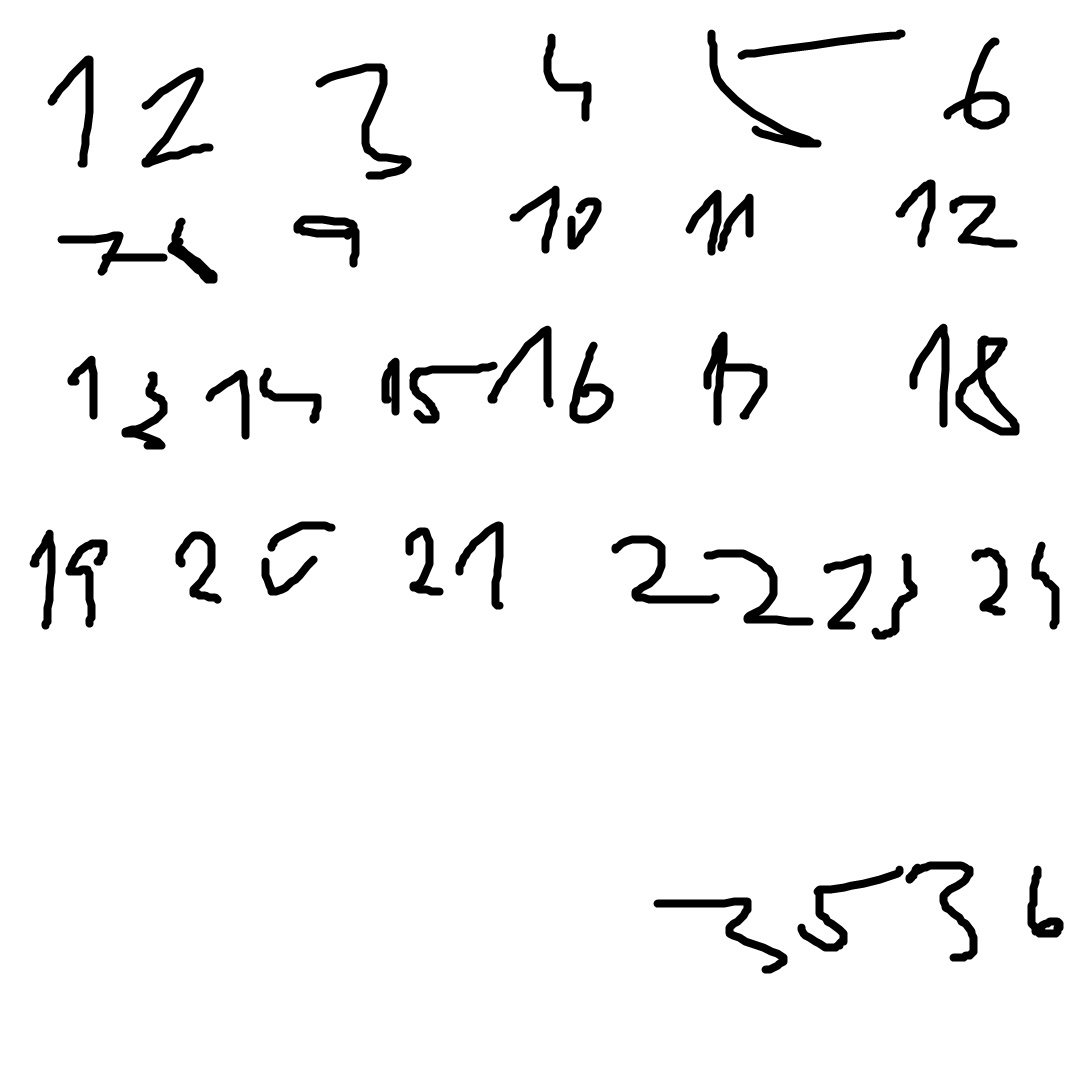 1 2 3 4 5 6
7 8 9 10 11 12
13 14 15 16 17 18
19 20 21 22 23 24
35 36